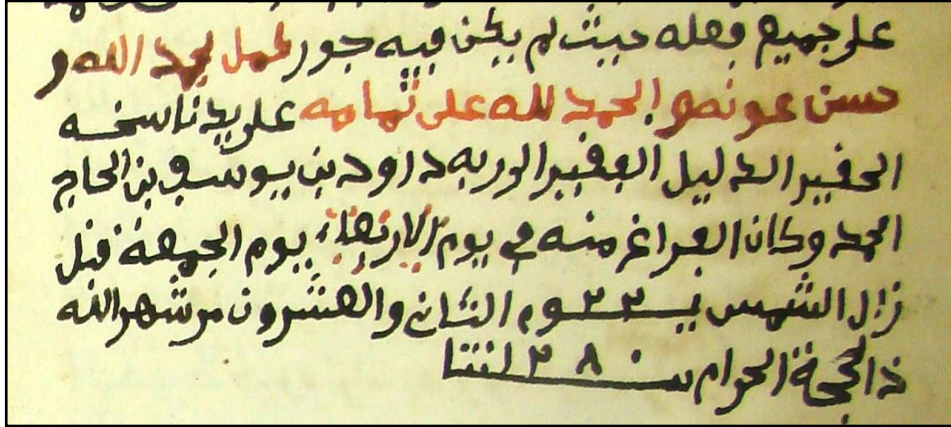 على جميع فعله حيث لم يكن فيه جور كمل بحمد الله و
حسن عونه والحمد لله على تمامه على يد ناسخه
الحقير الذليل الفقير الى ربه داود بن يوسف بن الحاج
امحمد وكان الفراغ منه في يوم الاربعاء يوم الجمعة قبل
زال الشمس يـــوم ٢٢ الثاني والعشرون من شهر الله
ذ الحجة الحرام سنـــة